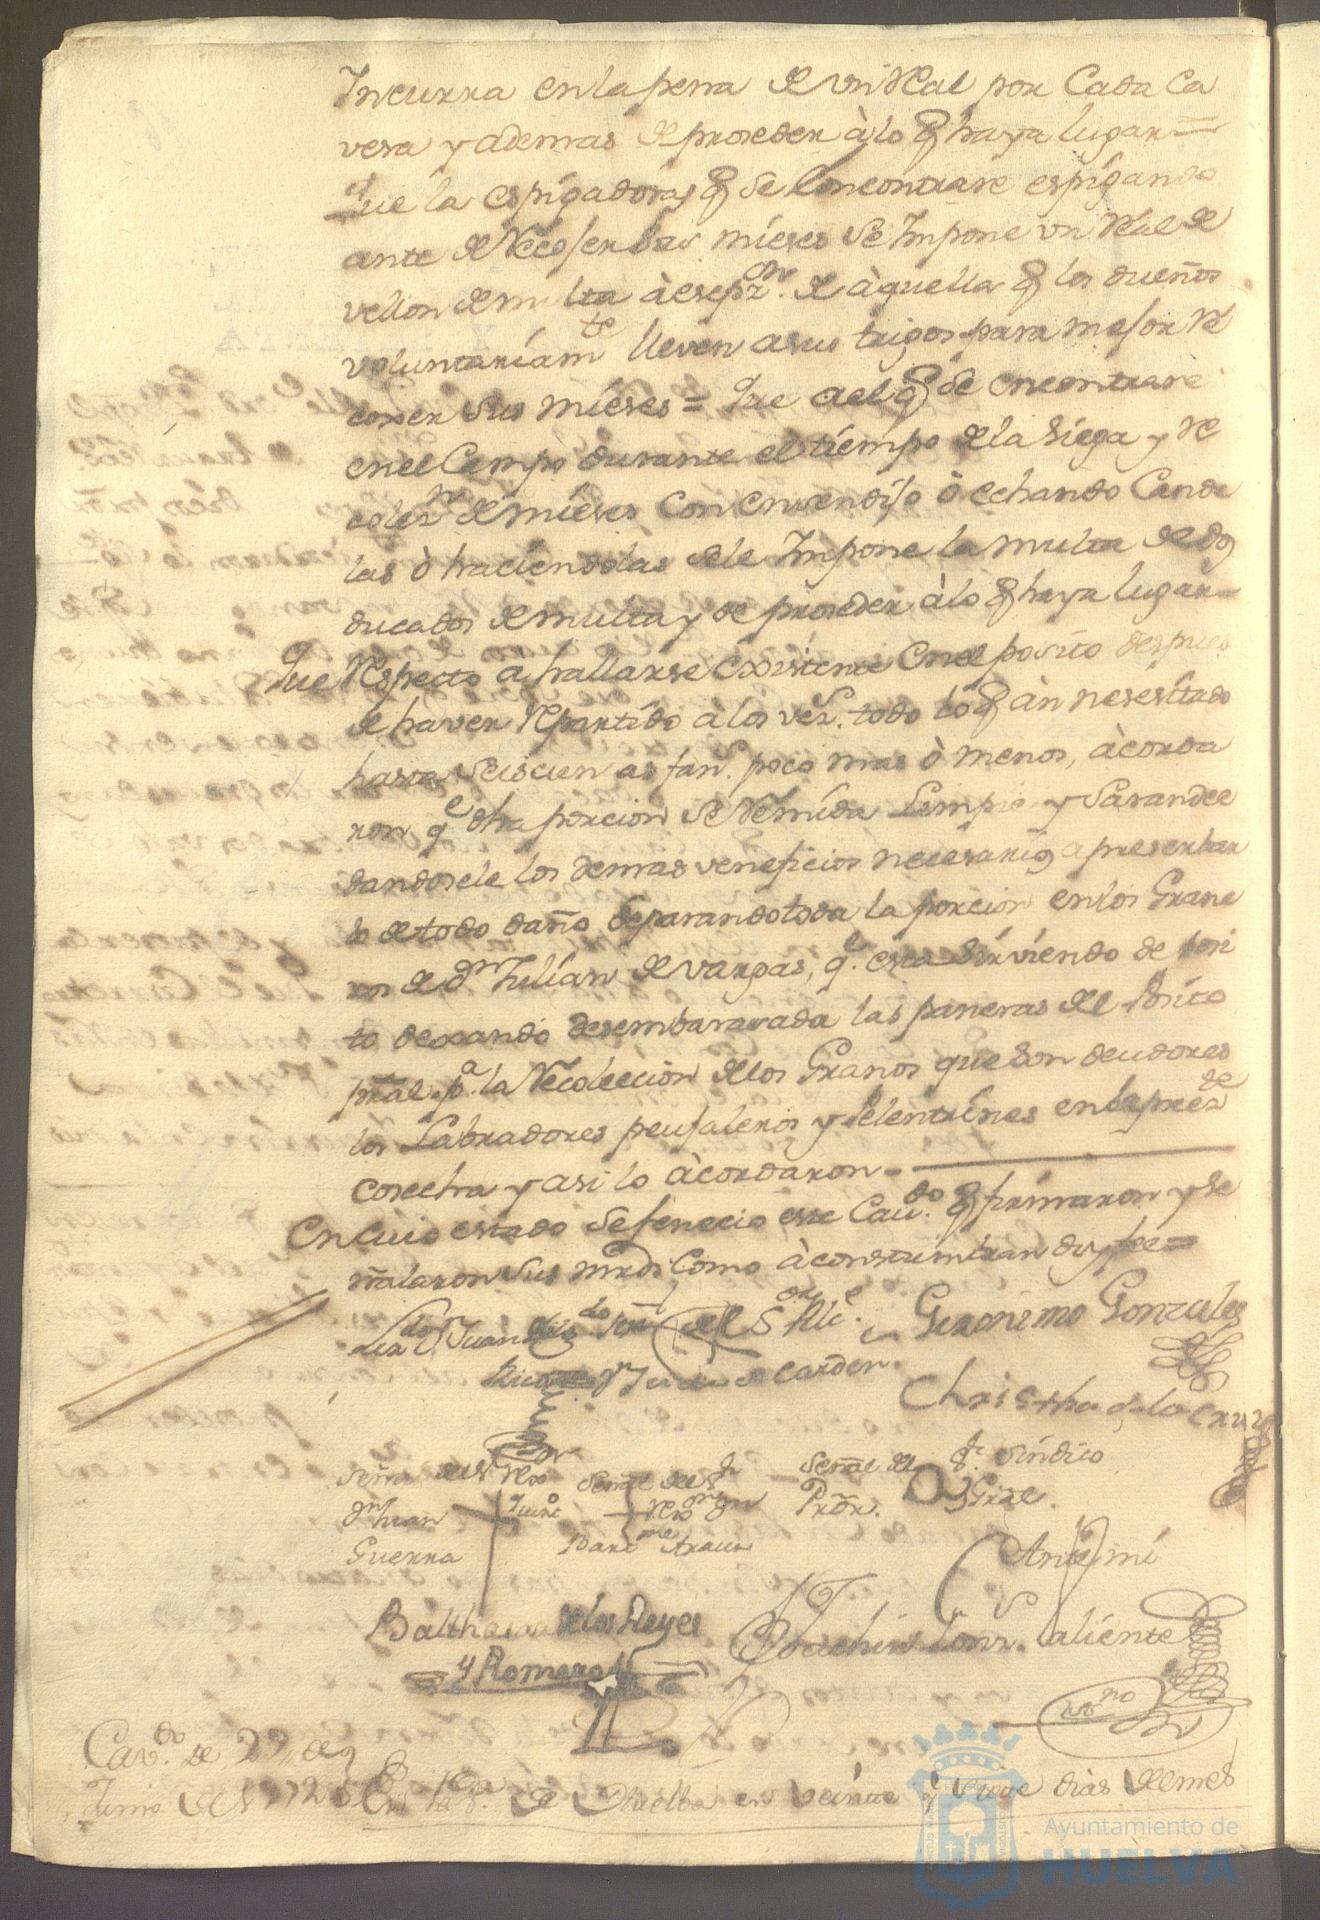 Incurra en la pena de un Real por Cada Ca
vesa y ademas de proseder â lo q haya lugar=
Que la espigadoras q se encontrare espigando
ante de Recoser las mieses se Impone un Real de
vellon de multa à esepzon. de àquella q los dueños
voluntariamte lleven a sus trigos para mejor Re
coxer sus mieses = Que a el q se encontrare
en el Campo durante el tiempo de la siega y Re
colezn de mieses con ensendijo ò echando Cande
las ò haciendolas sele Impone la multa de dos
ducados de multa y de proseder à lo q haya lugar=
Que Respecto a hallarse existente en el posito despues
de haver Repartido à los veSs. todo lo q àn nesesitado
hasta seiscientas fans. poco mas ò menos, àcorda
ron qe dha porcion se Remida Limpie y Sarandee
dandosele los demas veneficios necesarios a preserbar
lo de todo daño separando toda la porcion en los Grane
ros de Dn Julian de Vargas, qe. esta sirviendo de posi
to dexando desembarasada las paneras del Posito
pral. pa. la Recoleccion de los Granos que son deudores
los Labradores peujaleros y Pelentrines en la prezte
cosecha y asi lo àcordaron =
En cuio estado se fenecio este Cavdo. q firmaron y se
ñalaron sus mrds. Como àcostumbran doy fee=
Lizdo Dn Juan
del Sor Alce.
Geronimo Gonzales
Carden.
Christhoal de la Cruz
Señal del Sr Rexor
Señal del Sr
Señal del Sr. Sindico
Dn Juan
Rexor Dn
Pror. Gral.
Guerra
Barme Arauz
Ante mi
Balthasar de los Reyes
Joachin Gonz. Valiente
y Romero
Esno
Cavdo. de 29,, de
Junio de
En la Va. de Huelba en veinte y Nueve dias del mes
Ayuntamiento de
HUELVA